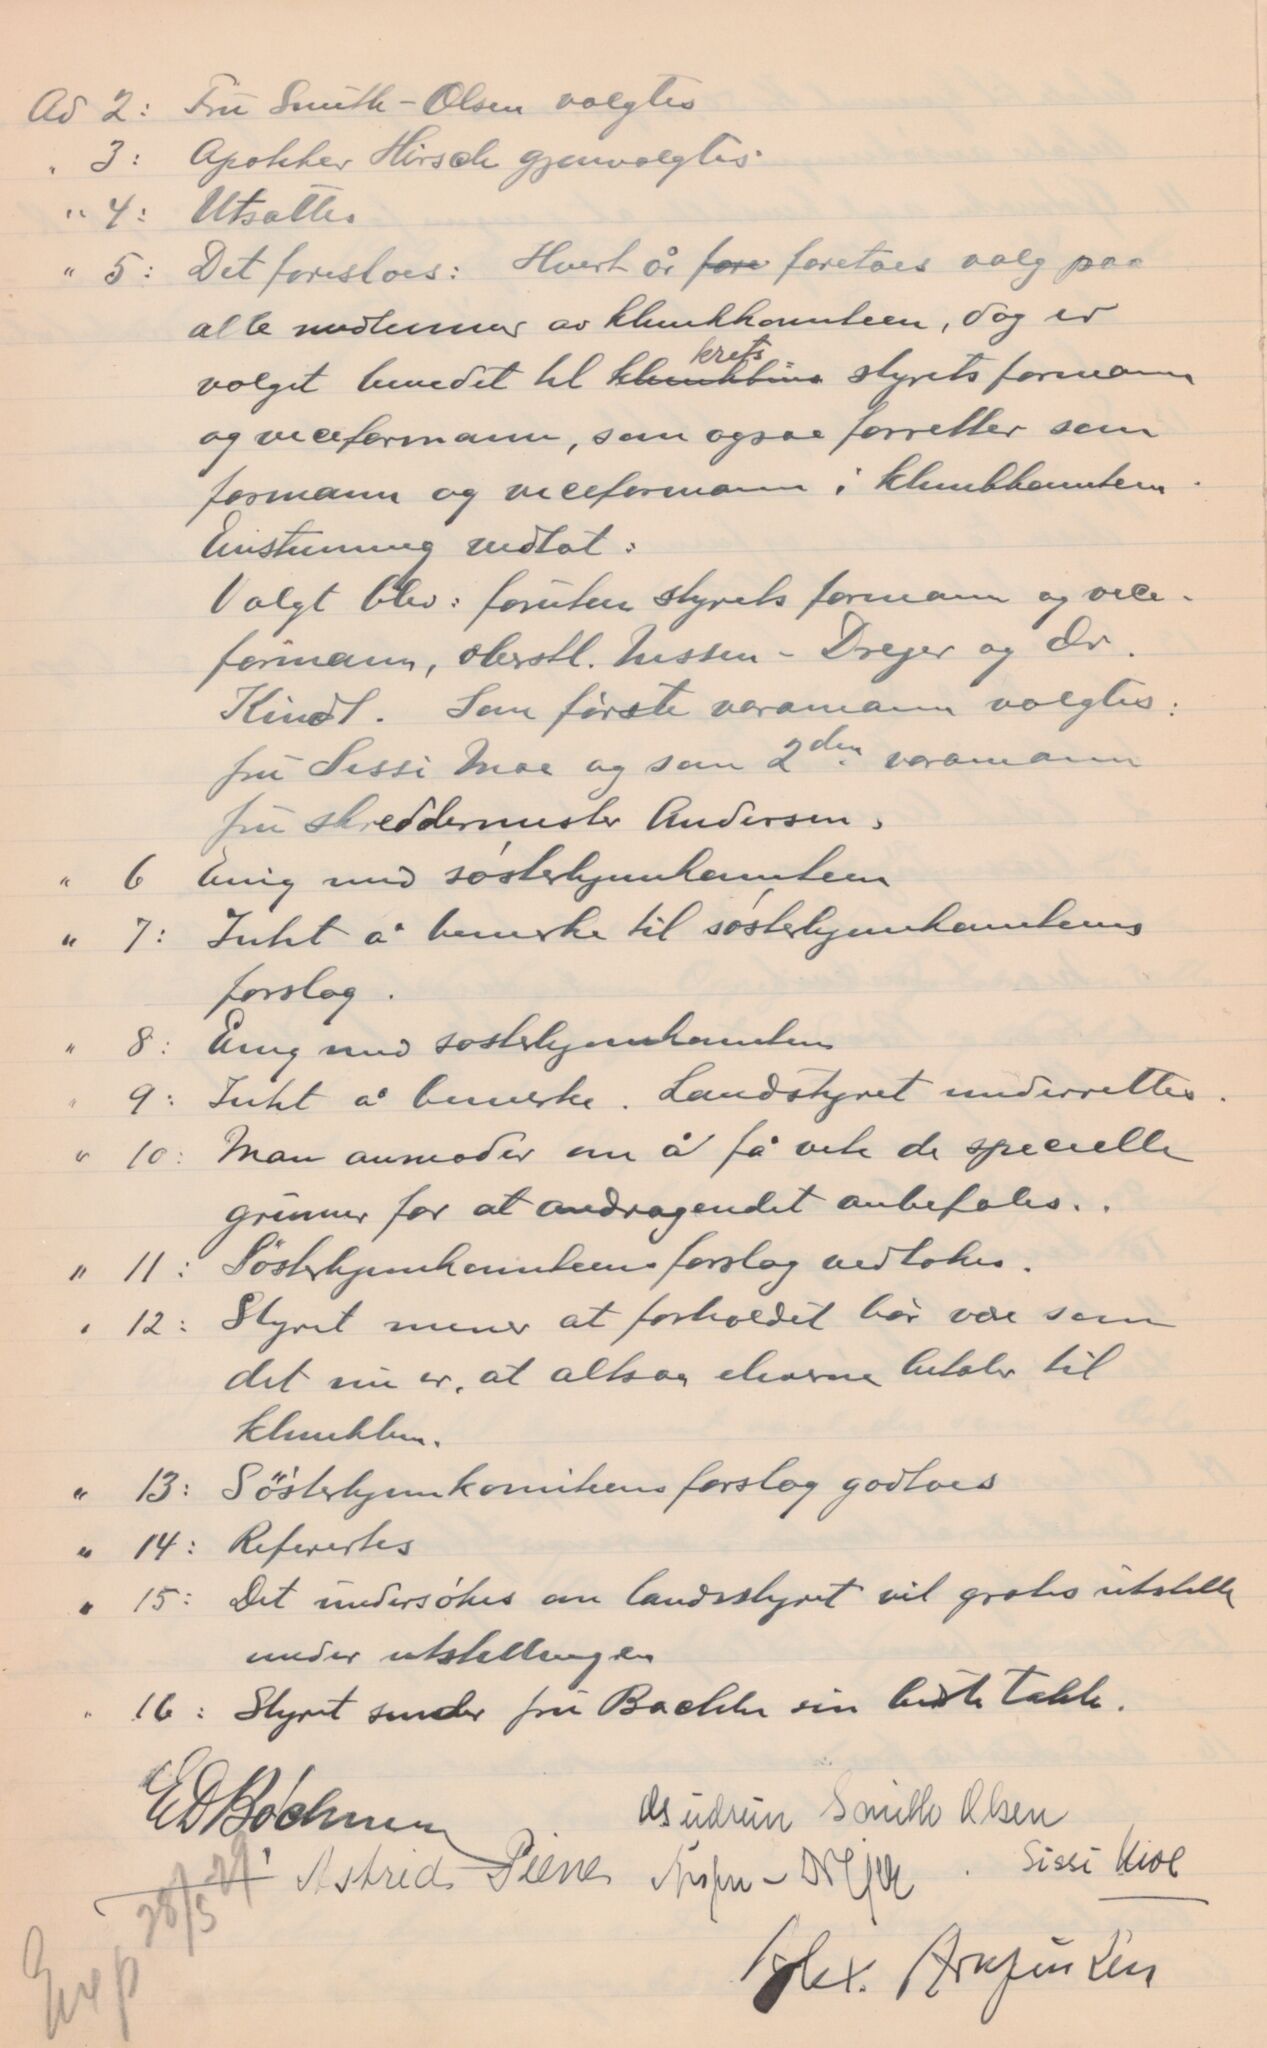 Ad 2: Frü Smith-Olsen valgtes
" 3: Apoteker Hirsch gjenvalgtes.
" 4: Utsattes
" 5: Det foresloes: Hvert år fore foretaes valg paa
alle medlemmer av klinikkomiteen, dog er
valget bundet til krets- styrets formann
og viceformann, som ogsaa forretter som
formann og viceformann i klinikkomiteen.
Enstemmig vedtat:
Valgt blev: foruten styrets formann og vice-
formann, oberstl. Nissen-Dreyer og Dr.
Kindt. Som første varamann valgtes:
frü Sissi Moe og som 2den varamann
frü skreddermester Andersen.
" 6 Enig med søsterhjemkomiteen
" 7: Intet å bemerke til søsterhjemkomiteens
forslag.
" 8: Enig med søsterhjemkomiteen
" 9: Intet å bemerke. Landsstyret underrettes.
" 10: Man anmoder om å få vite de specielle
grünner for at andragendet anbefales..
" 11: Søsterhjemkomiteens forslag vedtokes.
" 12: Styret mener at forholdet bør være som
det nü er, at altsaa eleverne betaler til
klinikken.
" 13: Søsterhjemkomiteens forslag godtoes
" 14: Refereertes
" 15: Det ündersøkes om landsstyret vil gratis utstille
under utstillingen
" 16: Styret sender frü Backke sin beste takk.
Gudrun Smith Olsen
Astrid Piene Nissen-Dreyer. Sissi Moe
28/5 29
Exp
Alex.